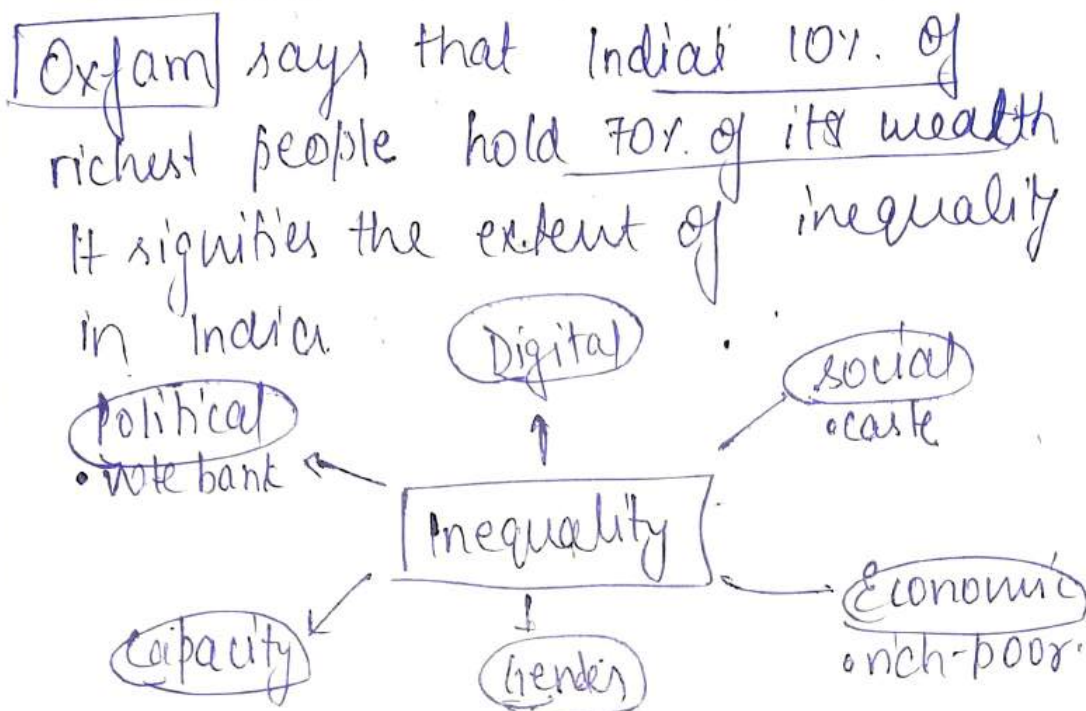 Oxfam says that India's 10%. of
richest people hold 70%. of its wealth
It signifies the extent of inequality
in India
Digital
social
• caste
Political
• vote bank
Inequality
Economic
• rich-poor.
Capacity
Gender